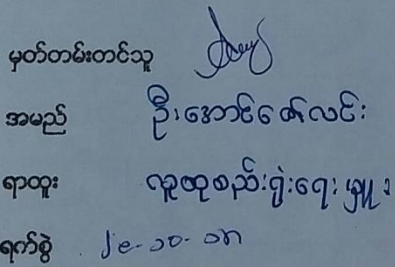 မှတ်တမ်းတင်သူ
အမည် ဦးအောင်ဇော်လင်း
ရာထူး လူထုစည်းရုံးရေးမှူး
ရက်စွဲ ၂၉-၁၀-၁၈